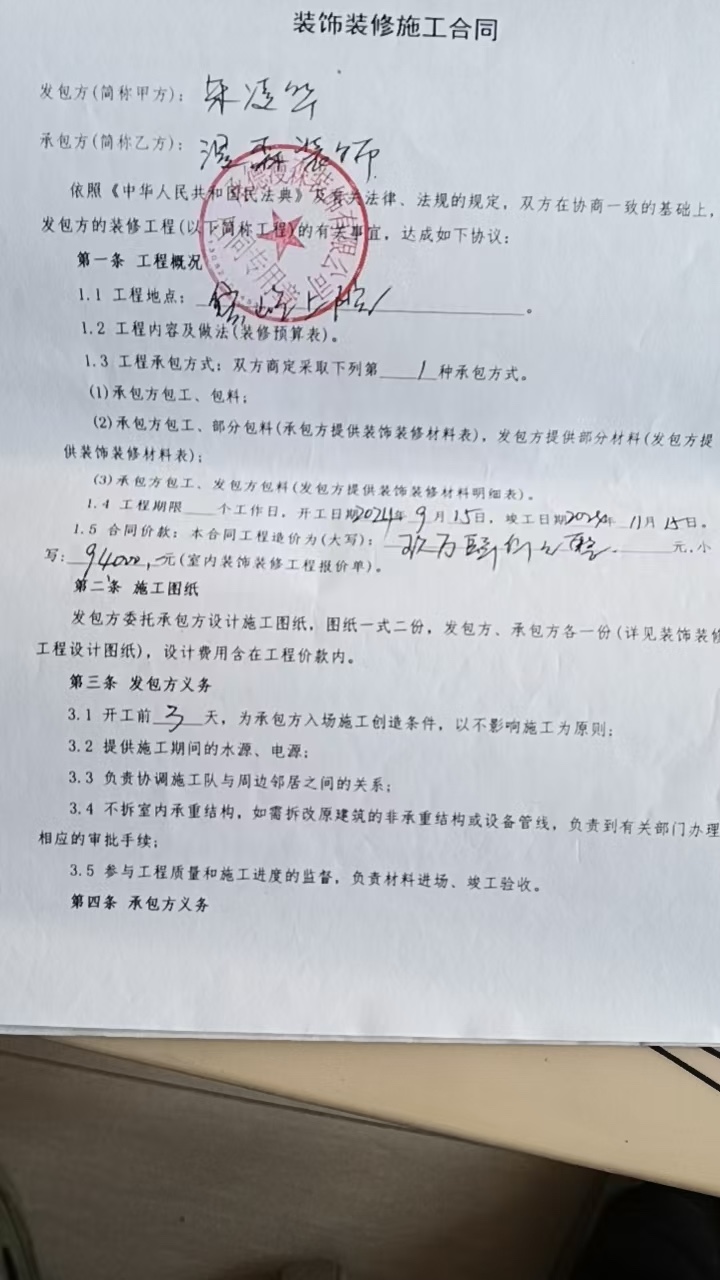 装饰装修施工合同
发包方(简称甲方)：朱凌华
承包方(简称乙方)：装饰
依照《中华人民共和国民法典》及有关法律、法规的规定，双方在协商一致的基础上，
发包方的装修工程(以下简称工程)的有关事宜，达成如下协议：
第一条 工程概况
1.1 工程地点：上院。
1.2 工程内容及做法(装修预算表)。
1.3 工程承包方式：双方商定采取下列第 1 种承包方式。
(1)承包方包工、包料；
(2)承包方包工、部分包料(承包方提供装饰装修材料表)，发包方提供部分材料(发包方提
供装饰装修材料表)；
(3)承包方包工、发包方包料(发包方提供装饰装修材料明细表)。
1.4 工程期限____个工作日，开工日期2024年 9月 15日，竣工日期2024年 11月 15日。
1.5 合同价款：本合同工程造价为(大写)：玖万肆仟元整.元，小
写：94000.元(室内装饰装修工程报价单)。
第二条 施工图纸
发包方委托承包方设计施工图纸，图纸一式二份，发包方、承包方各一份(详见装饰装修
工程设计图纸)，设计费用含在工程价款内。
第三条 发包方义务
3.1 开工前 3 天，为承包方入场施工创造条件，以不影响施工为原则；
3.2 提供施工期间的水源、电源；
3.3 负责协调施工队与周边邻居之间的关系；
3.4 不拆室内承重结构，如需拆改原建筑的非承重结构或设备管线，负责到有关部门办理
相应的审批手续；
3.5 参与工程质量和施工进度的监督，负责材料进场、竣工验收。
第四条 承包方义务
装饰有限公司
合同专用章